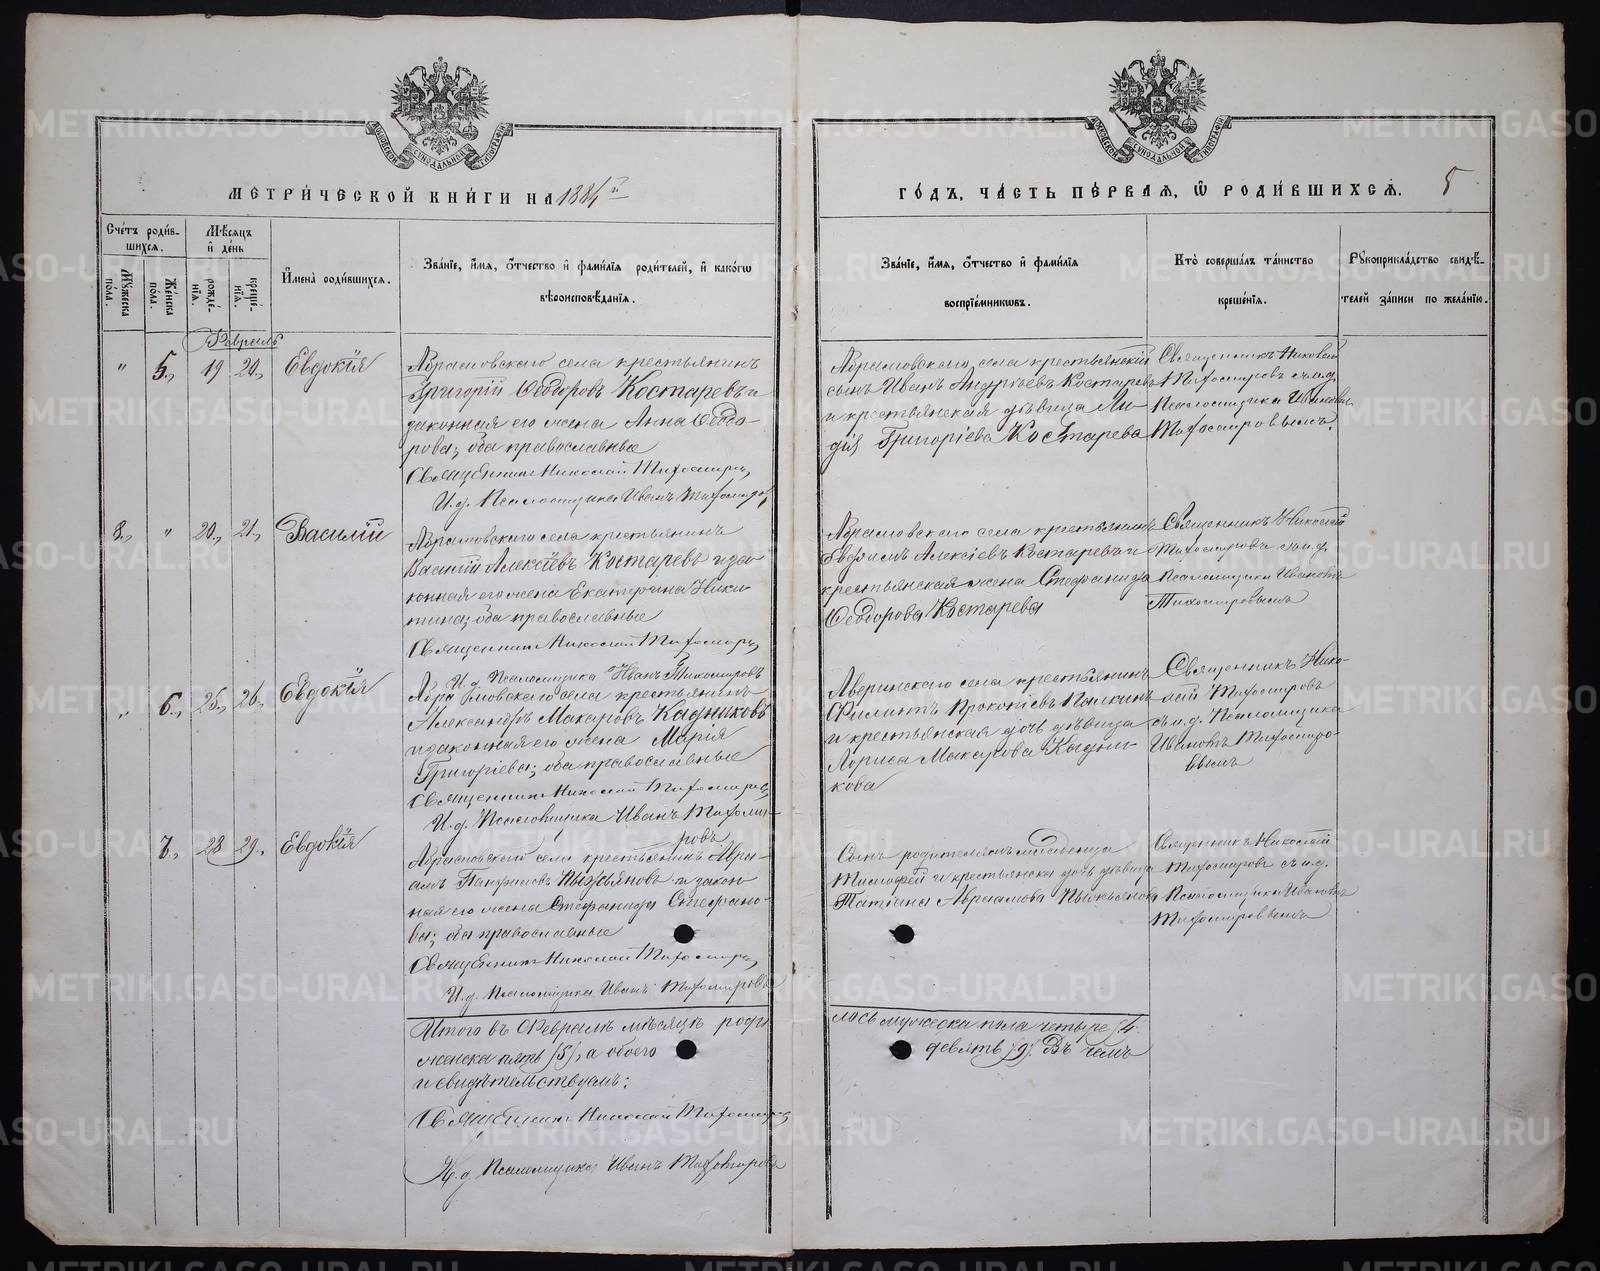 МЕТРИЧЕСКОЙ КНИГИ НА 1884й
ГОДЪ, ЧАСТЬ ПЕРВАЯ, Ѿ РОДИВШИХСЯ. 5
Счетъ родив-
шихся.
Мужеска пола.
Женска пола.
Мѣсяцъ
и день
рожде-
нія.
креще-
нія.
Имена родившихся.
Званіе, имя, отчество и фамилія родителей, и какогѡ
вѣроисповѣданія.
Званіе, имя, отчество и фамилія
воспріемниковъ.
Кто совершалъ таинство
крещенія.
Рукоприкладство свидѣ-
телей записи по желанію.
Февраль
" 5., 19 20., Евдокія
Абрамовскаго села крестьянинъ
Григорій Ѳеодоровъ Костаревъ и
законная его жена Анна Ѳеодо-
рова; оба православные
Священникъ Николай Тихомировъ
И.д. Псаломщика Иванъ Тихомировъ
Абрамовскаго села крестьянскій
сынъ Иванъ Андреевъ Костаревъ
и крестьянская дѣвица Ли-
дія Григоріева Костарева
Священникъ Николай
Тихомировъ съ и.д.
Псаломщика Иваномъ
Тихомировымъ.
8., " 20., 21., Василій
Абрамовскаго села крестьянинъ
Василій Алексіевъ Костаревъ и за-
конная его жена Екатерина Ники-
тина; оба православные
Священникъ Николай Тихомировъ
И.д. Псаломщика Иванъ Тихомировъ
Абрамовскаго села крестьянинъ
Евдоимъ Алексіевъ Костаревъ и
крестьянская жена Стефанида
Ѳеодорова Костарева
Священникъ Николай
Тихомировъ съ и.д.
псаломщика Иваномъ
Тихомировымъ
" 6., 25., 26., Евдокія
Абрамовскаго села крестьянинъ
Александръ Макаровъ Кадниковъ
и законная его жена Марія
Григоріева; оба православные
Священникъ Николай Тихомировъ
И.д. Псаломщика Иванъ Тихоми-
ровъ
Аверинскаго села крестьянинъ
Филиппъ Прокопіевъ Палкинъ
и крестьянская дочь дѣвица
Лариса Макарова Кадни-
кова
Священникъ Нико-
лай Тихомировъ
съ и.д. Псаломщика
Иваномъ Тихомиро-
вымъ
7., 28 29., Евдокія
Абрамовскаго села крестьянинъ Авра-
амъ Панфиловъ и закон-
ная его жена Стефанида Стефано-
ва; оба православные
Священникъ Николай Тихомировъ
И.д. Псаломщика Иванъ Тихомировъ
Сынъ родителямъ младенца
Тимофей и крестьянска дочь дѣвица
Татіана Авраамова
Священникъ Николай
Тихомировъ съ и.д.
Псаломщика Иваномъ
Тихомировымъ
Итого въ Февралѣ мѣсяцѣ роди
лось мужеска пола четыре /4/
женска пять /5/, а обоего
девять /9/. Въ чемъ
и свидѣтельствуемъ:
Священникъ Николай Тихомировъ
И.д. Псаломщика Иванъ Тихомировъ
METRIKI.GASO-URAL.RU